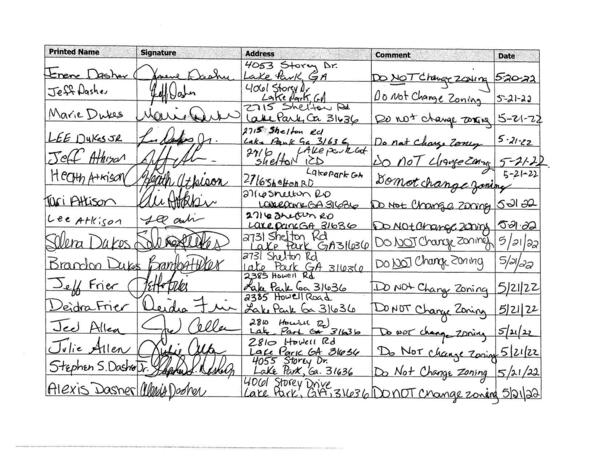 Printed Name Signature Address Comment Date
4053 Storey Dr.
Irene Dasher Irene Dasher Lake Park, GA Do NOT Change Zoning 5-20-22
4061 Storey Dr
Jeff Dasher Jeff Dasher Lake Park, GA Do Not Change Zoning 5-21-22
2715 Shelton Rd
Marie Dukes Marie Dukes Lake Park, Ga. 31636 Do not change zoning 5-21-22
2715 Shelton Rd
LEE DUKES JR Lee Dukes Jr. Lake Park Ga 31636 Do not change Zoning 5-21-22
2716 LAKE park Ga
Jeff Atkison shelton RD DO NOT Change Zoning 5-21-22
Lake park Ga 5-21-22
Heath Atkison Heath Atkison 2716 Shelton RD Do not change zoning
2716 Shelton RD
Tori Atkison Lake park GA 31636 Do Not Change Zoning 5-21-22
2716 Shelton RD
Lee Atkison Lake park GA 31636 Do Not Change Zoning 5-21-22
2731 Shelton Rd
Selera Dukes Selera Dukes Lake Park GA 31636 Do NOT Change Zoning 5/21/22
2731 Shelton Rd
Brandon Dukes Brandon Dukes Lake Park GA 31636 Do NOT Change Zoning 5/21/22
2385 Howell Rd
Jeff Frier Lake Park Ga 31636 DO Not Change Zoning 5/21/22
2385 Howell Road
Deidra Frier Deidra Lake Park GA 31636 DO NOT Change Zoning 5/21/22
2810 Howell Rd
Joel Allen Joel Allen Lake Park GA 31636 Do not change zoning 5/21/22
2810 Howell Rd
Julie Allen Julie Allen Lake Park GA 31636 Do Not Change Zoning 5/21/22
4055 Storey Dr
Stephen S. Dasher Jr. Lake Park, Ga. 31636 Do Not Change Zoning 5/21/22
4061 Storey Drive
Alexis Dasher Alexis Dasher Lake Park, GA, 31636 DO NOT Change zoning 5/21/22